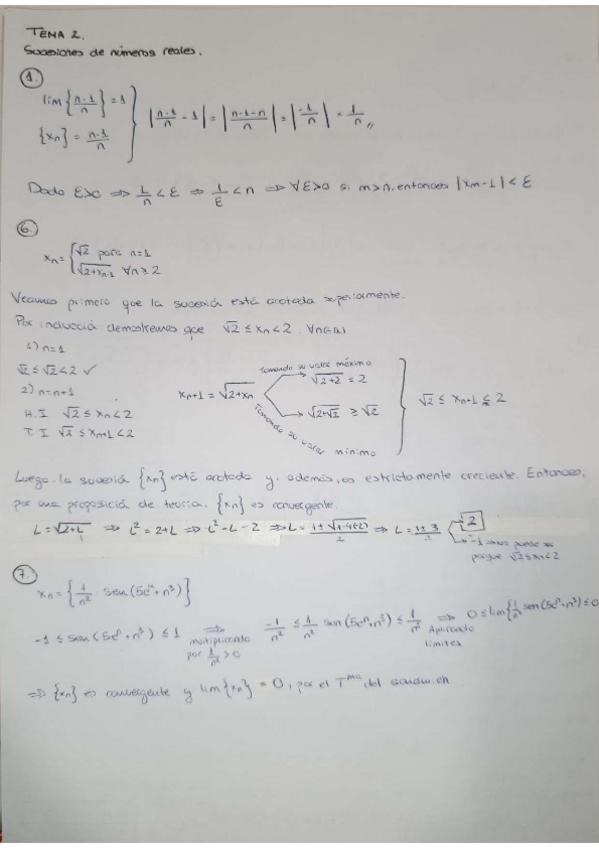 TEMA 2.
Sucesiones de números reales.
1.
lim {n-1/n} = 1
{xn} = n-1/n
|n-1/n - 1| = |n-1-n/n| = |-1/n| = 1/n //
Dado ε>0 ⟹ 1/n < ε ⟹ 1/ε < n ⟹ ∀ε>0 si m>n, entonces |xm-1| < ε
6.
xn = { √2 para n=1
√2+xn-1 ∀n≥2
Veamos primero que la sucesión está acotada superiormente.
Por inducción demostremos que √2 ≤ xn < 2, ∀n∈ℕ
1) n=1
√2 ≤ √2 < 2 ✓
2) n=n+1
H.I √2 ≤ xn < 2
T.I √2 ≤ xn+1 < 2
xn+1 = √2+xn
Tomando su valor máximo
√2+2 = 2
√2+√2 ≥ √2
Tomando su valor mínimo
√2 ≤ xn+1 ≤ 2
Luego la sucesión {xn} está acotada y, además, es estrictamente creciente. Entonces,
por una proposición de teoría, {xn} es convergente.
L = √2+L ⟹ L² = 2+L ⟹ L² - L - 2 ⟹ L = 1±√1-4(-2)/2 ⟹ L = 1±3/2
2
-1 → no puede
porque √2≤xn<2
7.
xn = {1/n² sen(5eⁿ+n³)}
-1 ≤ sen(5eⁿ+n³) ≤ 1 ⟹ multiplicando por 1/n² > 0
-1/n² ≤ 1/n² sen(5eⁿ+n³) ≤ 1/n² ⟹ Aplicando límites
0 ≤ lim{1/n² sen(5eⁿ+n³)} ≤ 0
⟹ {xn} es convergente y lim{xn} = 0, por el Tma del sandwich